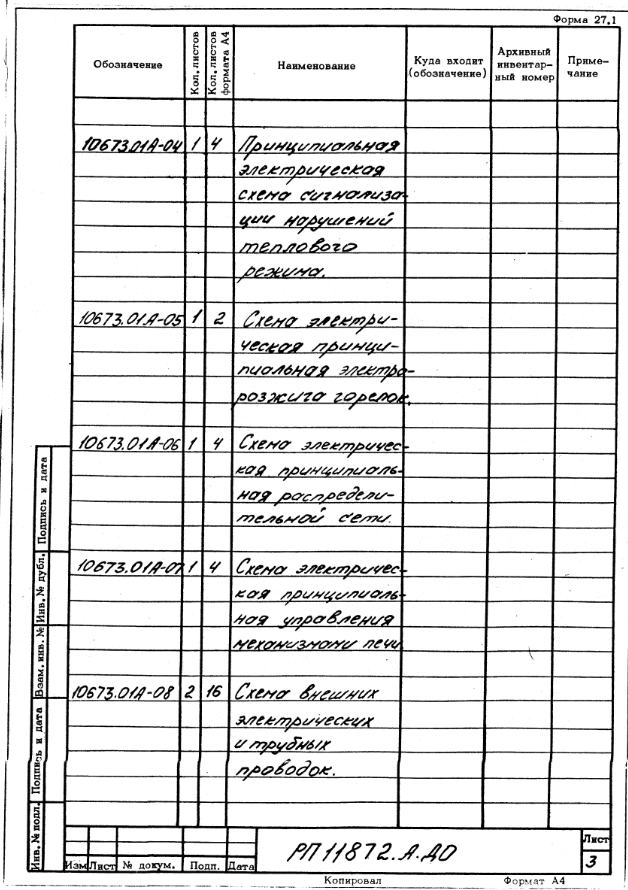 Форма 27.1
Обозначение
Кол. листов
Кол. листов
формата А4
Наименование
Куда входит
(обозначение)
Архивный
инвентар-
ный номер
Приме-
чание
10673.01А-04 1 4 Принципиальная
электрическая
схема сигнализа-
ции нарушений
теплового
режима.
10673.01А-05 1 2 Схема электри-
ческая принци-
пиальная электро-
розжига горелок.
10673.01А-06 1 4 Схема электричес-
кая принципиаль-
ная распредели-
тельной сети.
10673.01А-07 1 4 Схема электричес-
кая принципиаль-
ная управления
механизмами печи
10673.01А-08 2 16 Схема внешних
электрических
и трубных
проводок.
Инв. № подл. Подпись и дата Взам. инв. № Инв. № дубл. Подпись и дата
Изм Лист № докум. Подп. Дата
РП 11872.А.ДО
Лист
3
Копировал Формат А4